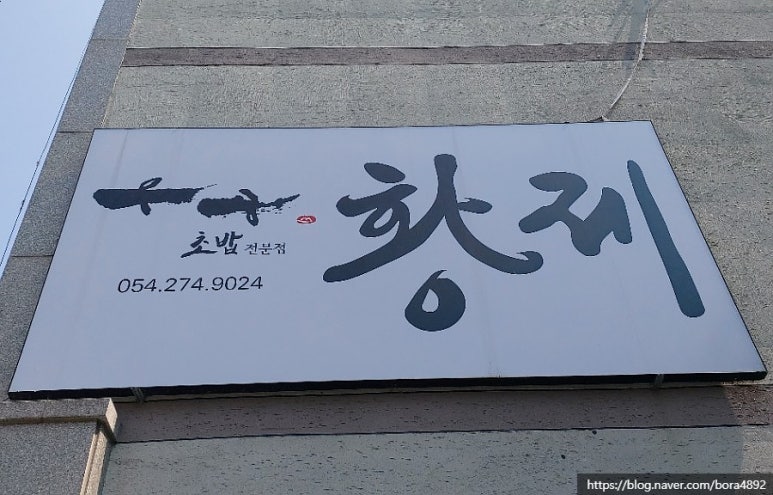 황제
초밥 전문점
054.274.9024
https://blog.naver.com/bora4892